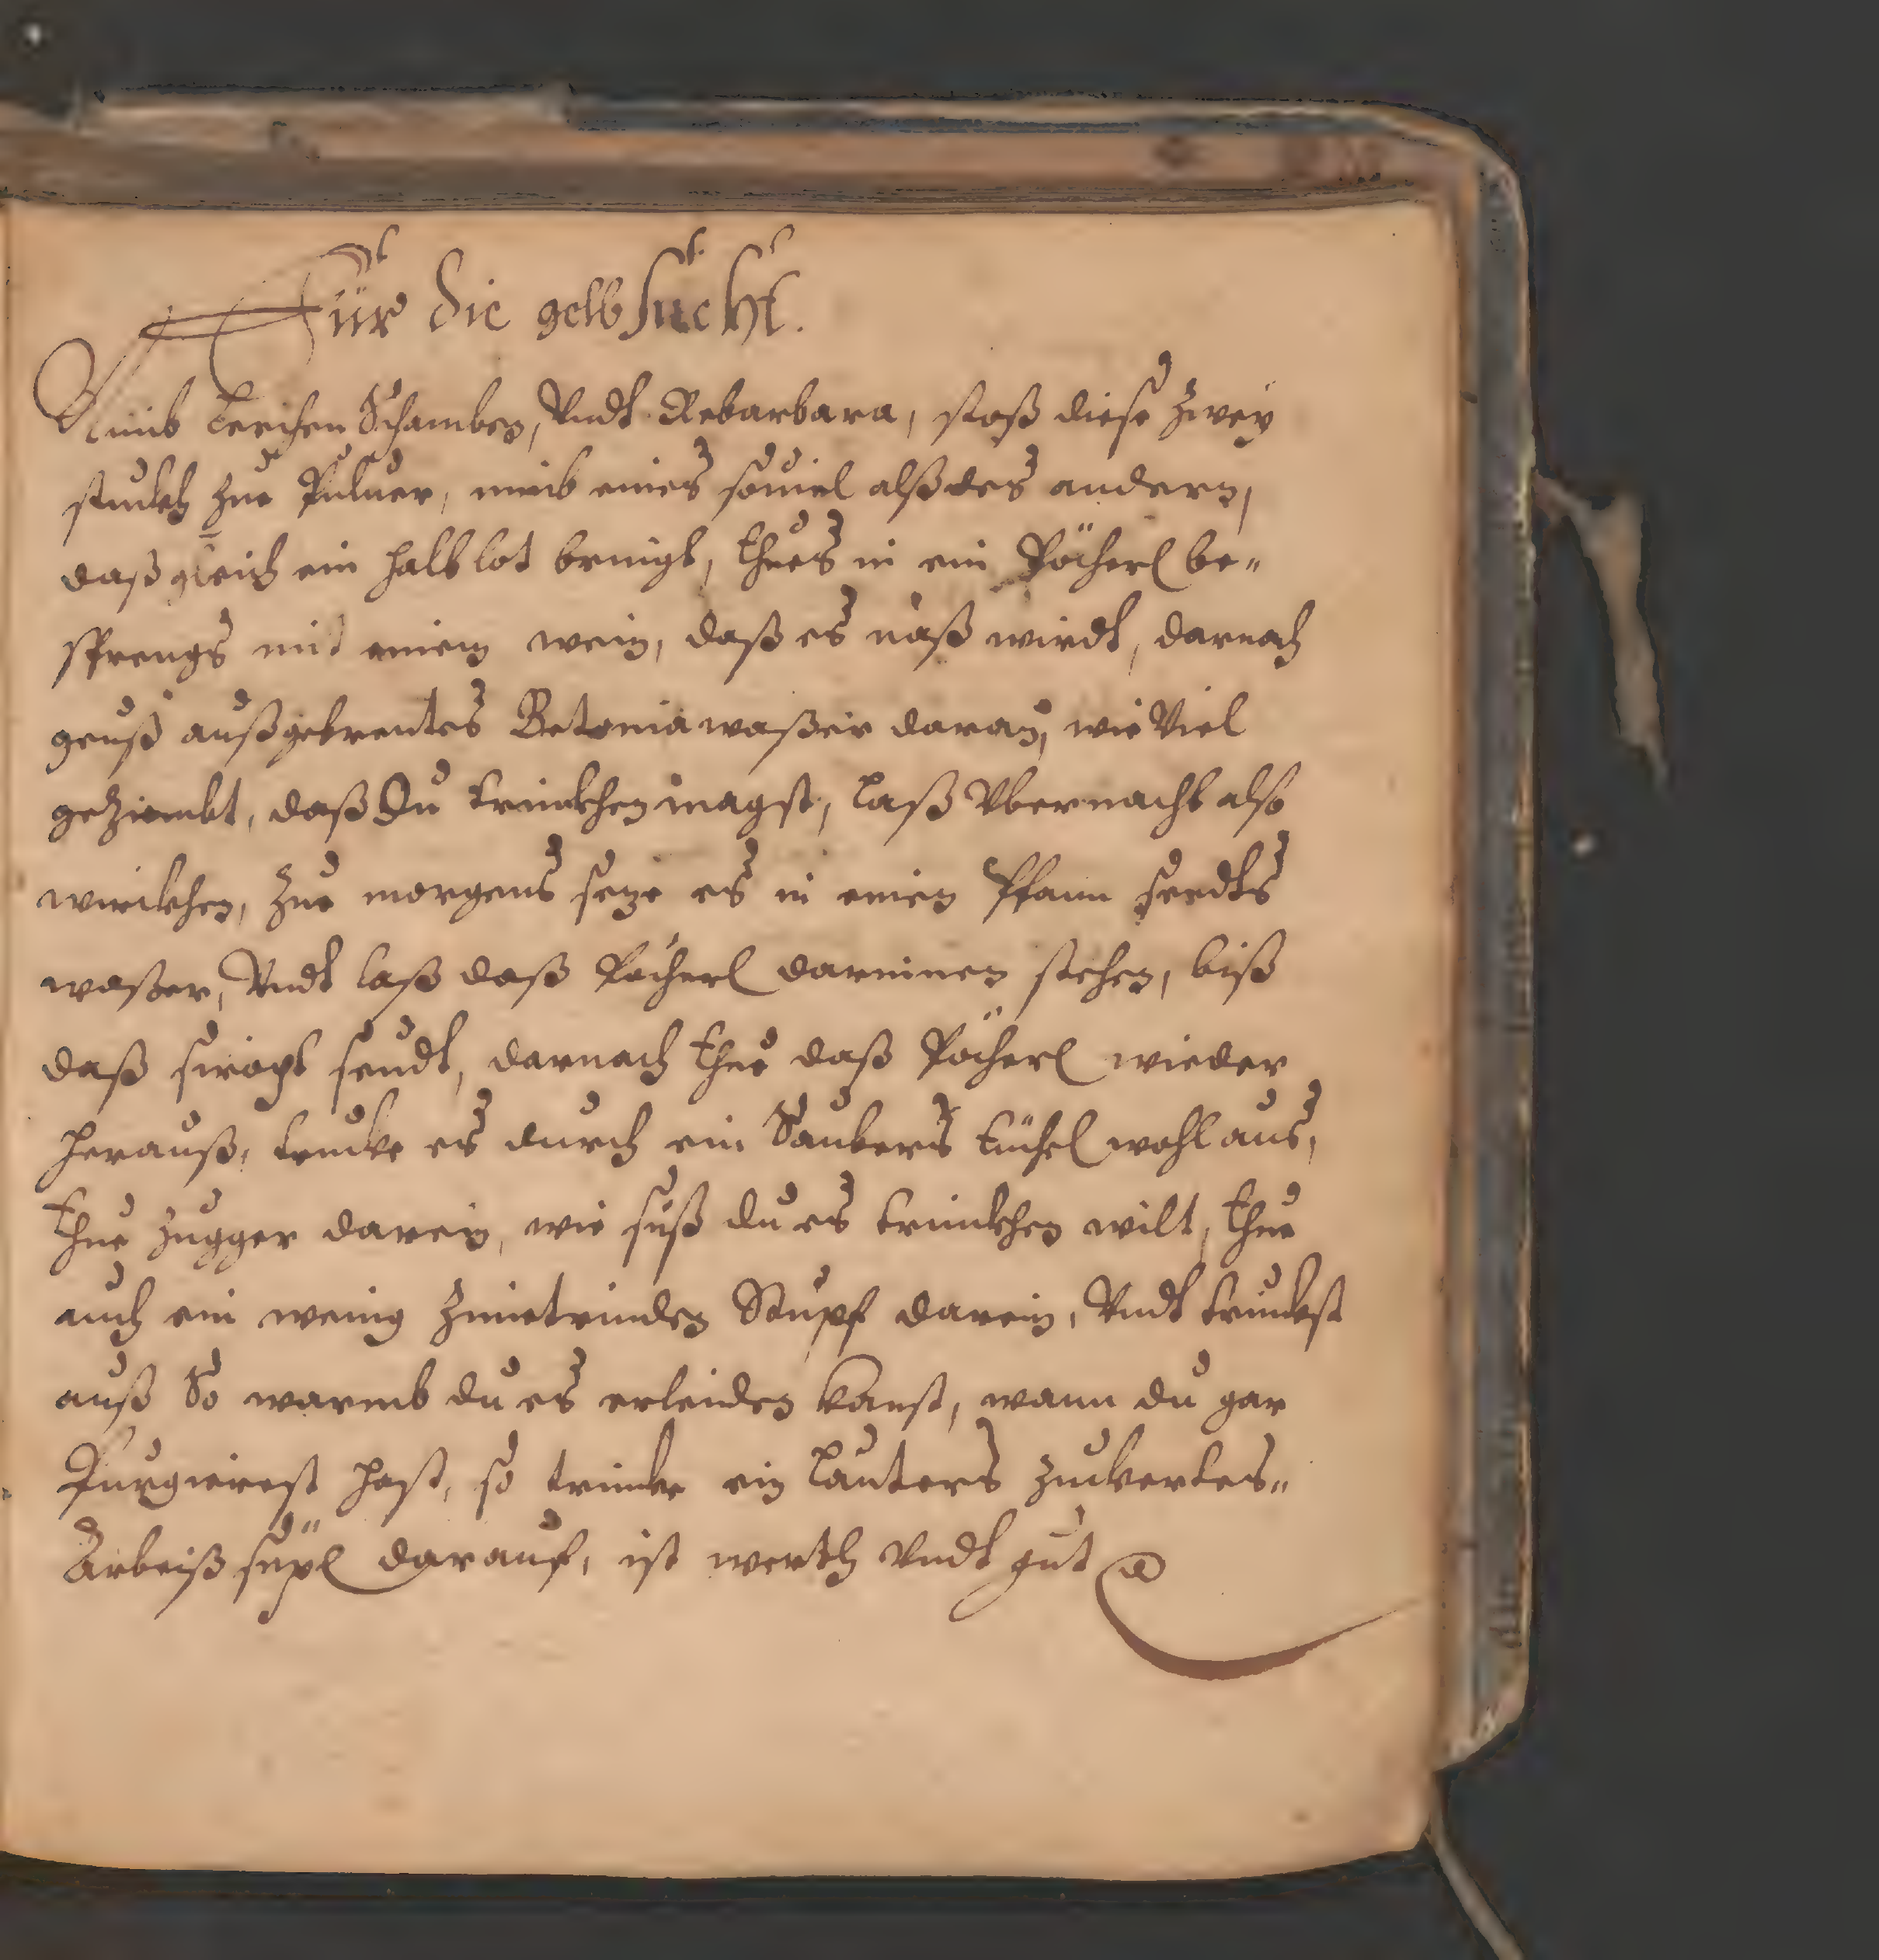 Für die gelbsucht.
Nimb Lerchen Schamben, Vndt Rebarbara, stoß diese zwey
stuckh zue Puluer, nimb eines souiel alß des andern,
daß gleich ein halb lot bringt, thues in ein Pöcherl be-
sprengs mit einem wein, daß es naß wirdt, darnach
geuß außgebrentes Betonia waßer daran, wie Viel
gezimbt, daß Du trinckhen magst, laß Vber nacht also
weickhen, zue morgens seze es in einen Pfann seedts
waßer, Vndt laß daß Pöcherl darinnen stehen, biß
daß siropt seudt, darnach thue daß Pöcherl wieder
herauß, trucke es durch ein Saubers tüchel wohl aus,
thue zugger darein, wie süß du es trinckhen wilt, thue
auch ein wenig Zimetrinden Stupf darein, Vndt trinckst
auß So warmb du es erleiden kanst, wann du gar
Purgierest hast, so trincke ein lauters zuckertes-
Arbeiß süpl darauf, ist werth Vndt gut